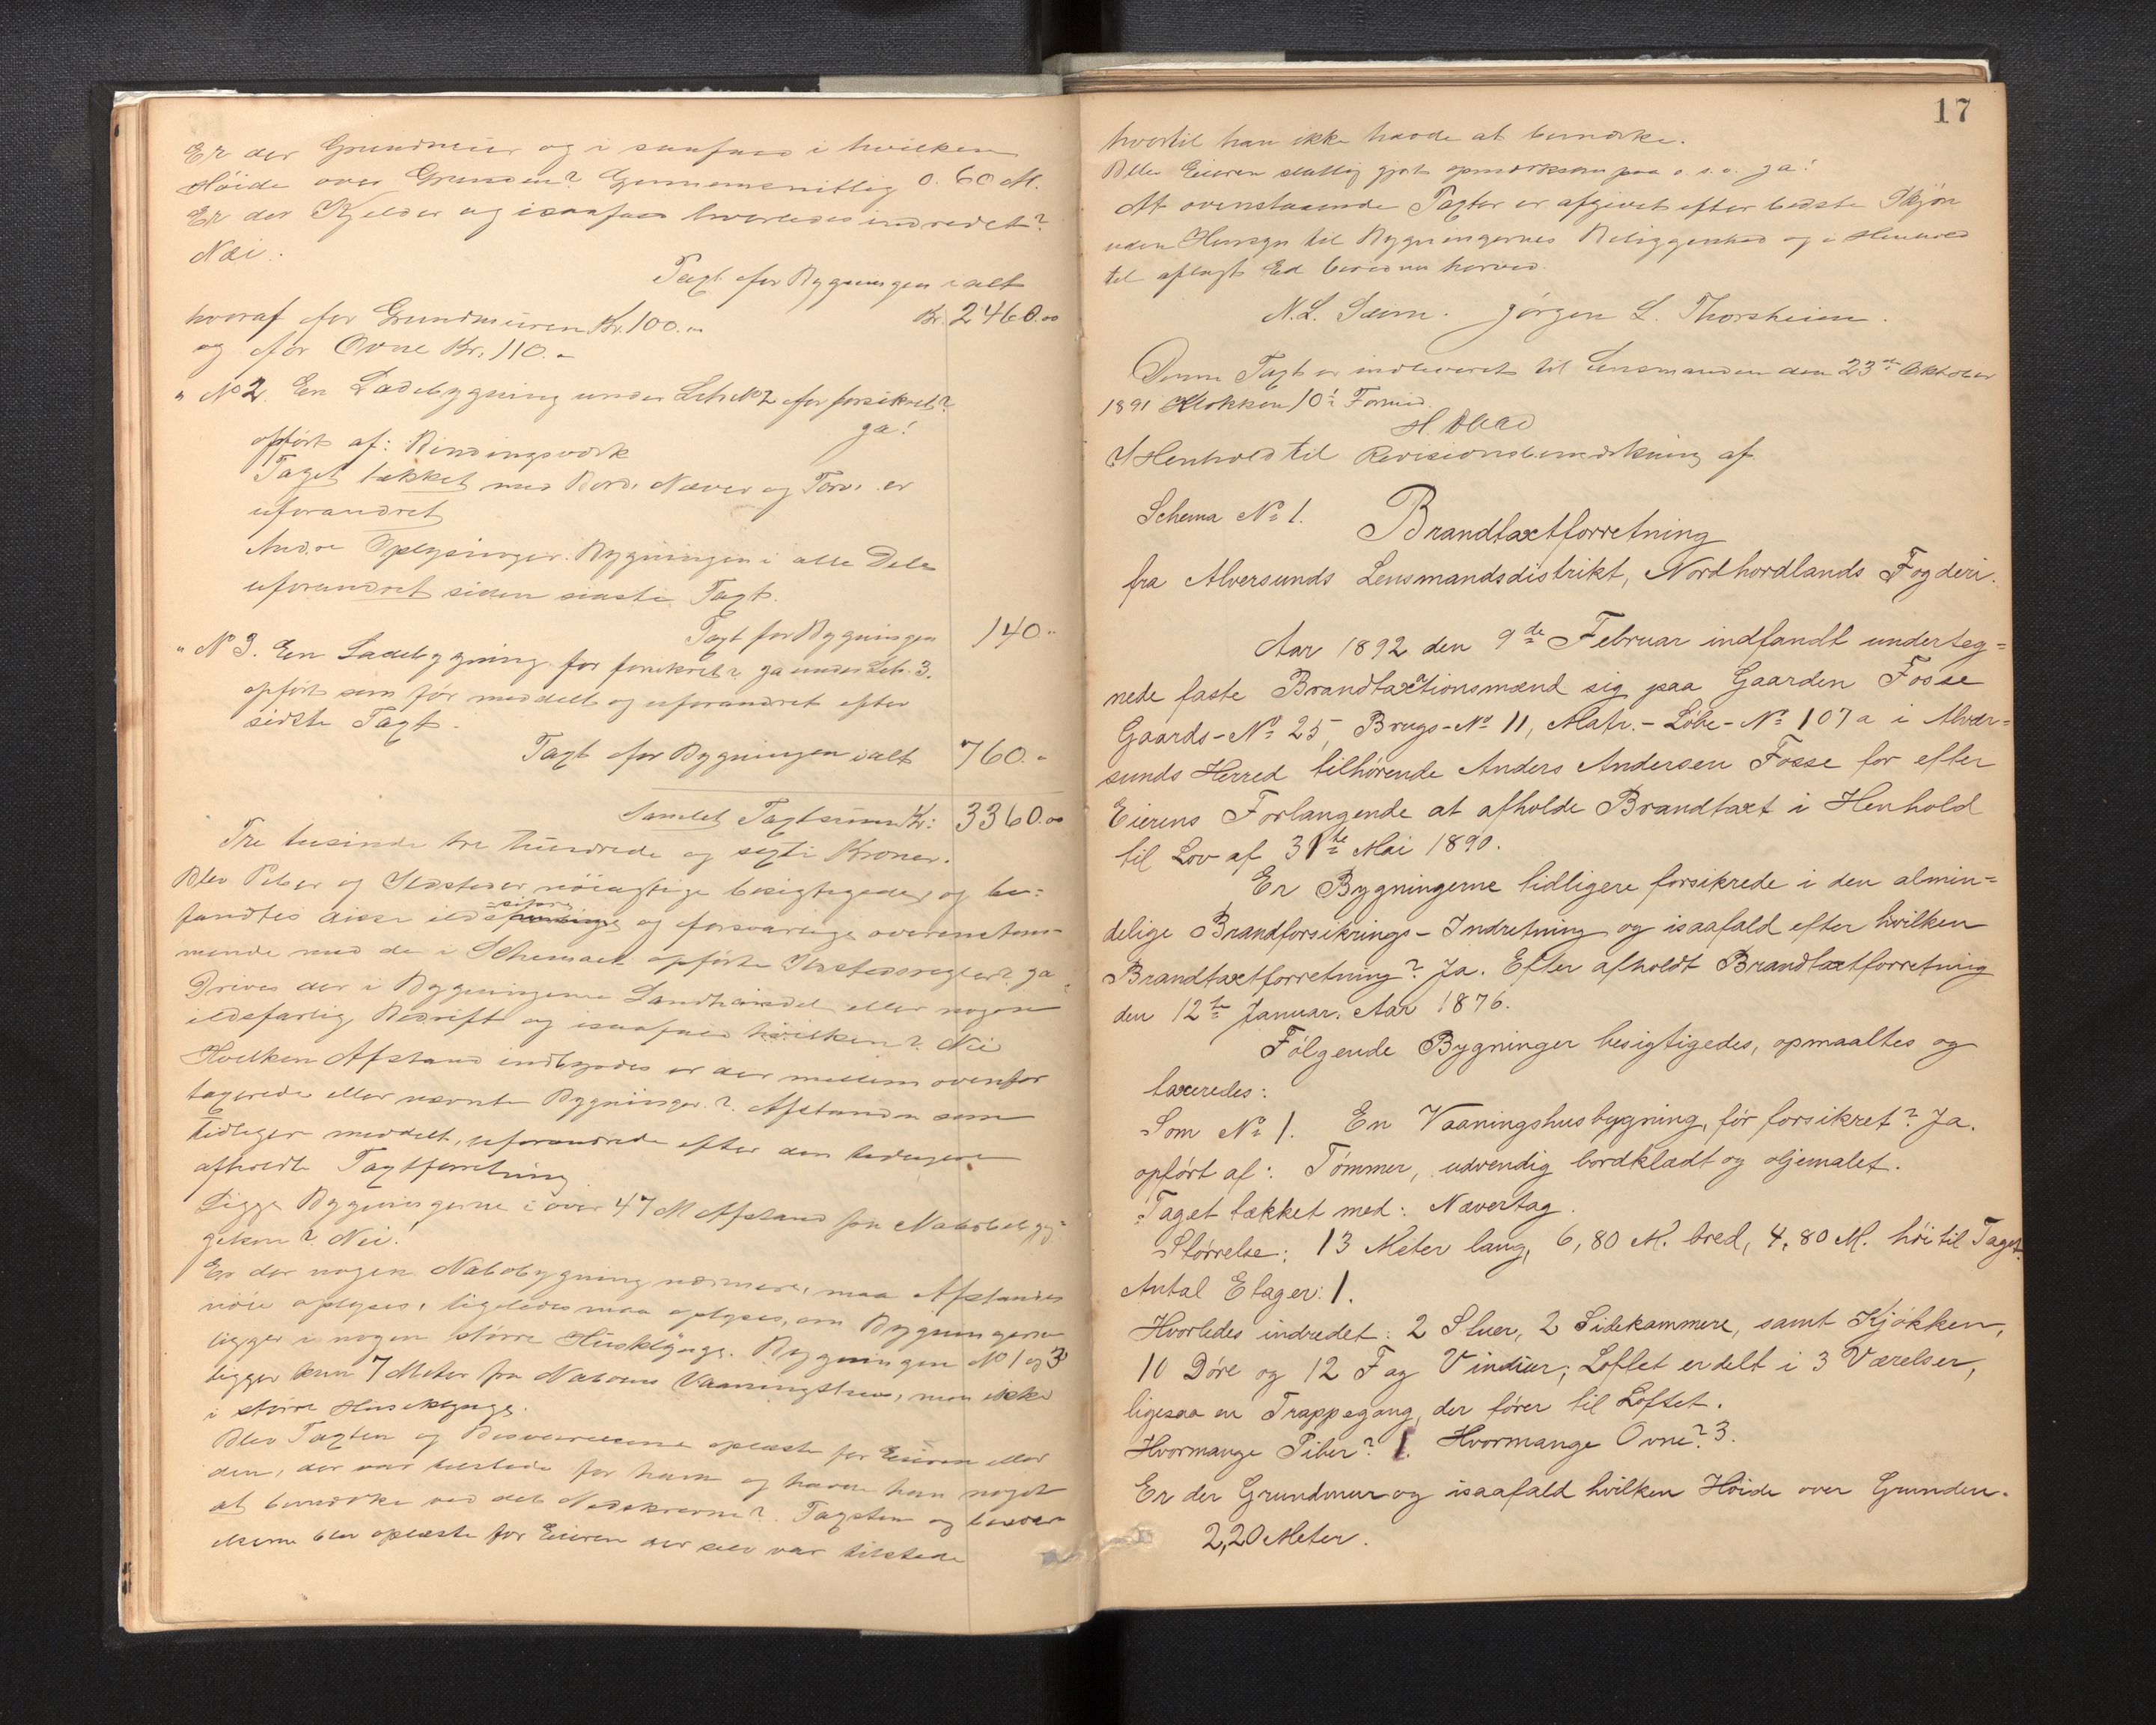 Er der Grundmur og i saafald i hvilken
Höide over Grunden? Gennemsnitlig 0.60 M.
Er der Kjelder og isaafald hvorledes indredet?
Nei.
Taxt for Bygningen ialt
hvoraf for Grundmuren Kr. 100.- Kr. 2460.00
og for Ovne Kr. 110.-
" No 2. En Ladebygning under Litr. No 2 før forsikret?
ja!
opført af: Bindingsværk
Taget tækket med Bord, Næver og Torv. er
uforandret
Andre Oplysninger. Bygningen i alle Dele
uforandret siden sidste Taxt.
Taxt for Bygningen 140."
" No 3. En Ladebygning før forsikret? ja under Litr. 3.
opført som før meddelt og uforandret efter
sidste Taxt.
Taxt for Bygningen ialt 760.-
Samlet Taxtsum Kr: 3360.00
Tre tusinde tre hundrede og sexti Kroner.
Blev Piber og Ildsteder nöiagtige besigtigede, og be=
fandtes disse ildssikre og forsvarlige overenstem-
mende med de i Schemaet opførte Ildstedsregler? ja
Drives der i Bygningerne Landhandel eller nogen
ildsfarlig Bedrift og isaafald hvilken? Nei
Hvilken Afstand indbyrdes er der mellem ovenfor
taxerede eller nævnte Bygninger? Afstanden som
tidligere meddelt, uforandrede efter den tidligere
afholdte Taxtforretning
Ligge Bygningerne i over 47 M Afstand fra Nabobebyg=
gelsen? Nei!
Er der nogen Nabobygning nærmere, maa Afstanden
nöie oplyses, ligeledes maa oplyses, om Bygningerne
ligger i nogen större Husklynge. Bygningen No 1 og 3
ligger kun 7 Meter fra Naboens Vaaningshus, men ikke
i större Husklynge.
Blev Taxten og Besvarelserne oplæste for Eieren eller
den, der var tilstede for ham og havde han noget
at bemærke ved det Nedskrevne? Taxten og besvar
elserne blev oplæste for Eieren der selv var tilstede
17
hvortil han ikke havde at bemærke.
Blev Eieren slutlig gjort opmærksom paa o. s. v. ja!
At ovenstaaende Taxter er afgivet efter bedste Skjön
uden Hensyn til Bygningernes Beliggenhed og i Henhold
til aflagt Ed bevidnes herved.
N. L. Seim. Jørgen L. Thorsheim.
Denne Taxt er indleveret til Lensmanden den 23de Oktober
1891 Klokken 10 Formid.
I Henhold til Revisionsbemærkning af
Schema No 1.
Brandtaxtforretning
fra Alversunds Lensmandsdistrikt, Nordhordlands Fogderi.
Aar 1892 den 9de Februar indfandt underteg=
nede faste Brandtaxtionsmænd sig paa Gaarden Fosse
Gaards-No 25, Brugs-No 11, Matr.-Löbe-No 107a i Alver=
sunds Herred tilhørende Anders Andersen Fosse for efter
Eierens Forlangende at afholde Brandtaxt i Henhold
til Lov af 31te Mai 1890.
Er Bygningerne tidligere forsikrede i den almin=
delige Brandforsikrings-Indretning og isaafald efter hvilken
Brandtaxtforretning? Ja. Efter afholdt Brandtaxtforretning
den 12te Januar. Aar 1876.
Følgende Bygninger besigtigedes, opmaaltes og
taxeredes:
Som No 1. En Vaaningshusbygning, før forsikret? Ja.
opført af: Tömmer, udvendig bordklædt og oljemalet.
Taget tækket med: Nævertag.
Størrelse: 13 Meter lang, 6,80 M. bred, 4,80 M. høi til Taget.
Antal Etager: 1.
Hvorledes indredet: 2 Stuer, 2 Sidekammere, samt Kjøkken,
10 Døre og 12 Fag Vinduer; Loftet er delt i 3 Værelser,
ligesaa en Trappegang, der fører til Loftet.
Hvormange Piber? 1. Hvormange Ovne? 3.
Er der Grundmur og isaafald hvilken Høide over Grunden.
2,20 Meter.